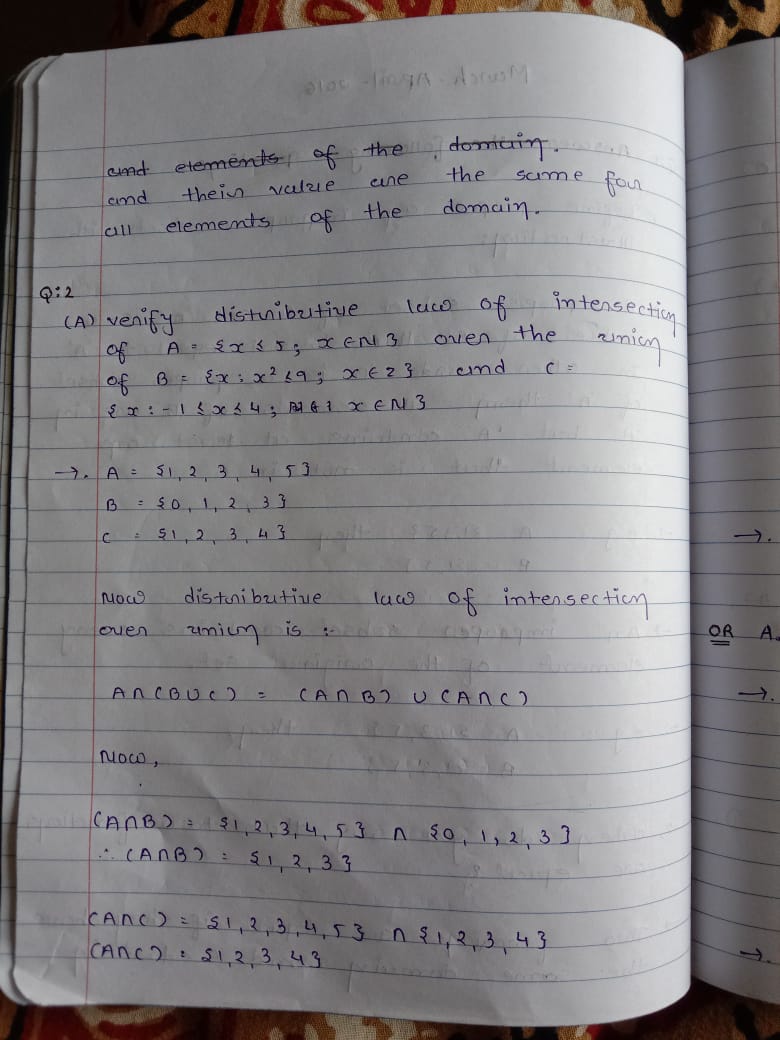 and elements of the domain.
and their value are the same for
all elements of the domain.
Q:2
(A) verify distributive law of intersection
of A = {x ≤ 5; x ∈ N} over the union
of B = {x : x² ≤ 9; x ∈ Z} and C =
{x : -1 ≤ x ≤ 4; x ∈ N}
→. A = {1, 2, 3, 4, 5}
B = {0, 1, 2, 3}
C = {1, 2, 3, 4}
Now distributive law of intersection
over union is :-
A∩(B∪C) = (A∩B) ∪ (A∩C)
Now,
(A∩B) = {1, 2, 3, 4, 5} ∩ {0, 1, 2, 3}
∴ (A∩B) = {1, 2, 3}
(A∩C) = {1, 2, 3, 4, 5} ∩ {1, 2, 3, 4}
(A∩C) = {1, 2, 3, 4}
→.
OR A.
→.
→.